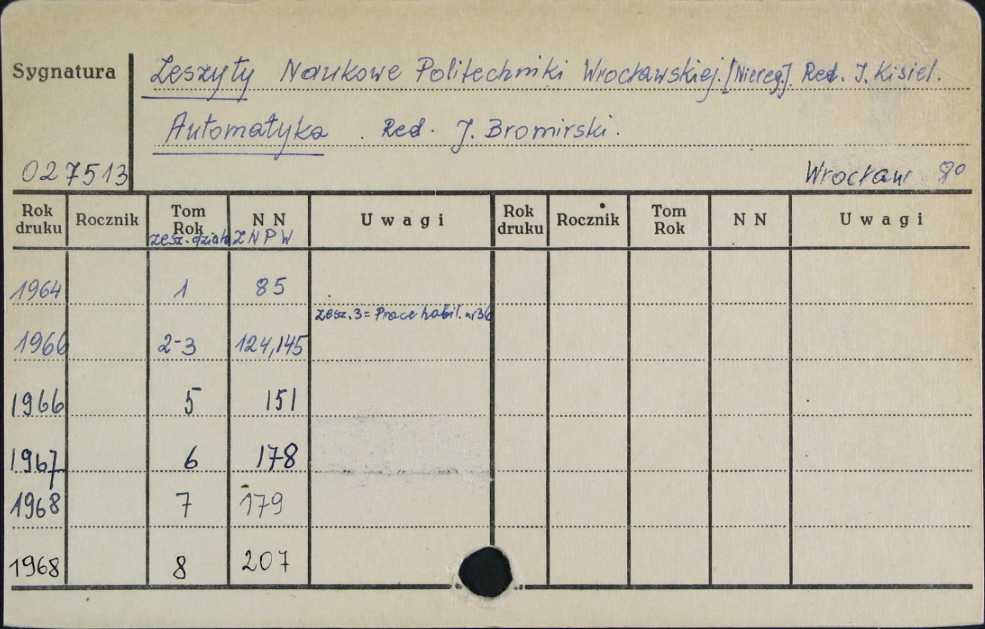 Sygnatura
Zeszyty Naukowe Politechniki Wrocławskiej. [Niereg.]. Red. I. Kisiel.
Automatyka. Red. J. Bromirski.
027513
Wrocław 8°
Rok druku Rocznik Tom Rok N N Uwagi Rok druku Rocznik Tom Rok N N Uwagi
zesz. działu ZNPW
1964 1 85
zesz. 3 = Prace habil. nr 36
1966 2-3 124,145
1966 5 151
1967 6 178
1968 7 179
1968 8 207